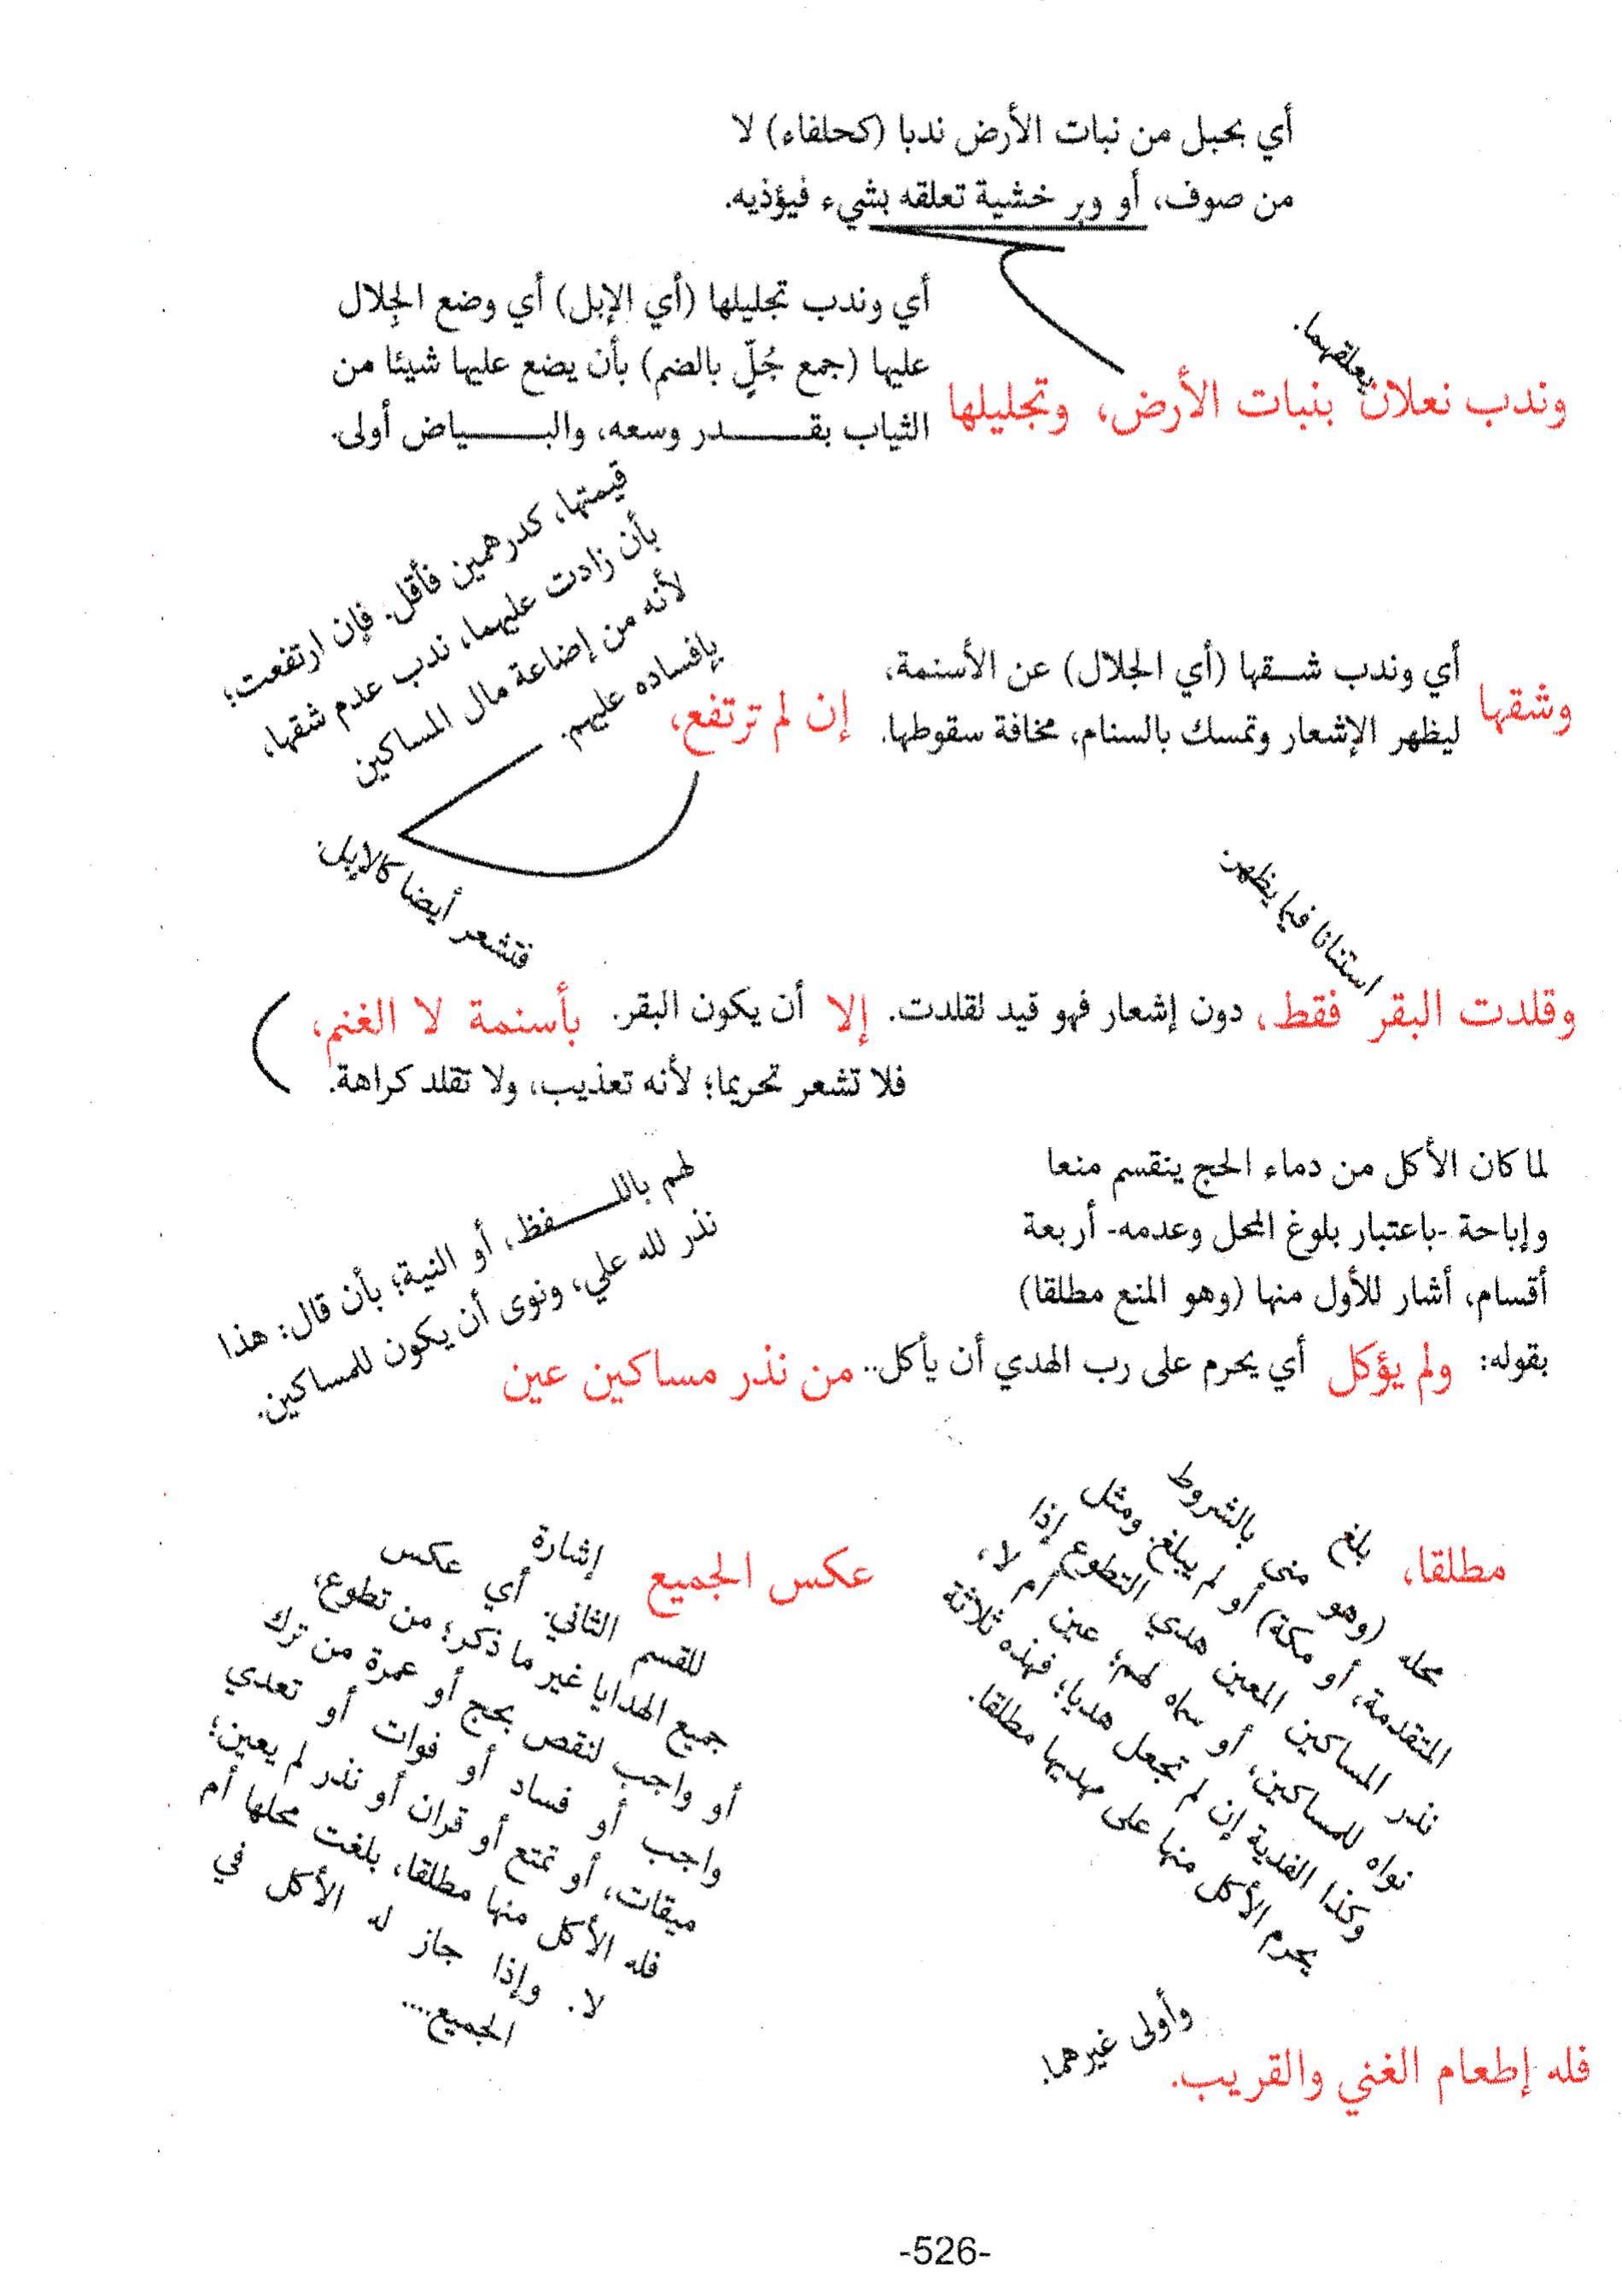 أي بحبل من نبات الأرض ندبا (كحلفاء) لا
من صوف، أو وبر خشية تعلقه بشيء فيؤذيه.
أي وندب تجليلها (أي الإبل) أي وضع الجِلال
عليها (جمع جُلٍّ بالضم) بأن يضع عليها شيئا من
الثياب بقـــدر وسعه، والبـــياض أولى.
يعلقهما.
وندب نعلان بنبات الأرض، وتجليلها
وشقها
أي وندب شــقها (أي الجلال) عن الأسنمة،
ليظهر الإشعار وتمسك بالسنام، مخافة سقوطها.
إن لم ترتفع،
قيمتها، كدرهمين فأقل. فإن ارتفعت؛
بأن زادت عليهما، ندب عدم شقها،
لأنه من إضاعة مال المساكين
بإفساده عليهم.
استنانا فيما يظهر.
وقلدت البقر فقط، دون إشعار فهو قيد لقلدت. إلا أن يكون البقر. بأسنمة لا الغنم،
فتشعر أيضا كالإبل.
فلا تشعر تحريما؛ لأنه تعذيب، ولا تقلد كراهة.
لما كان الأكل من دماء الحج ينقسم منعا
وإباحة -باعتبار بلوغ المحل وعدمه- أربعة
أقسام، أشار للأول منها (وهو المنع مطلقا)
بقوله: ولم يؤكل أي يحرم على رب الهدي أن يأكل.. من نذر مساكين عين
لهم باللـــفظ، أو النية؛ بأن قال: هذا
نذر لله علي، ونوى أن يكون للمساكين.
مطلقا،
بلغ بالشروط
محله (وهو منى
المتقدمة، أو مكة) أو لم يبلغ. ومثل
نذر المساكين المعين هدي التطوع إذا
نواه للمساكين، أو سماه لهم؛ عين أم لا،
وكذا الفدية إن لم تجعل هديا؛ فهذه ثلاثة
يحرم الأكل منها على مهديها مطلقا.
عكس الجميع
إشارة
للقسم الثاني. أي عكس
جميع الهدايا غير ما ذكر؛ من تطوع،
أو واجب لنقص بحج أو عمرة من ترك
واجب أو فساد أو فوات أو تعدي
ميقات، أو تمتع أو قران أو نذر لم يعين؛
فله الأكل منها مطلقا، بلغت محلها أم
لا. وإذا جاز له الأكل في
الجميع....
فله إطعام الغني والقريب.
وأولى غيرهما.
-526-